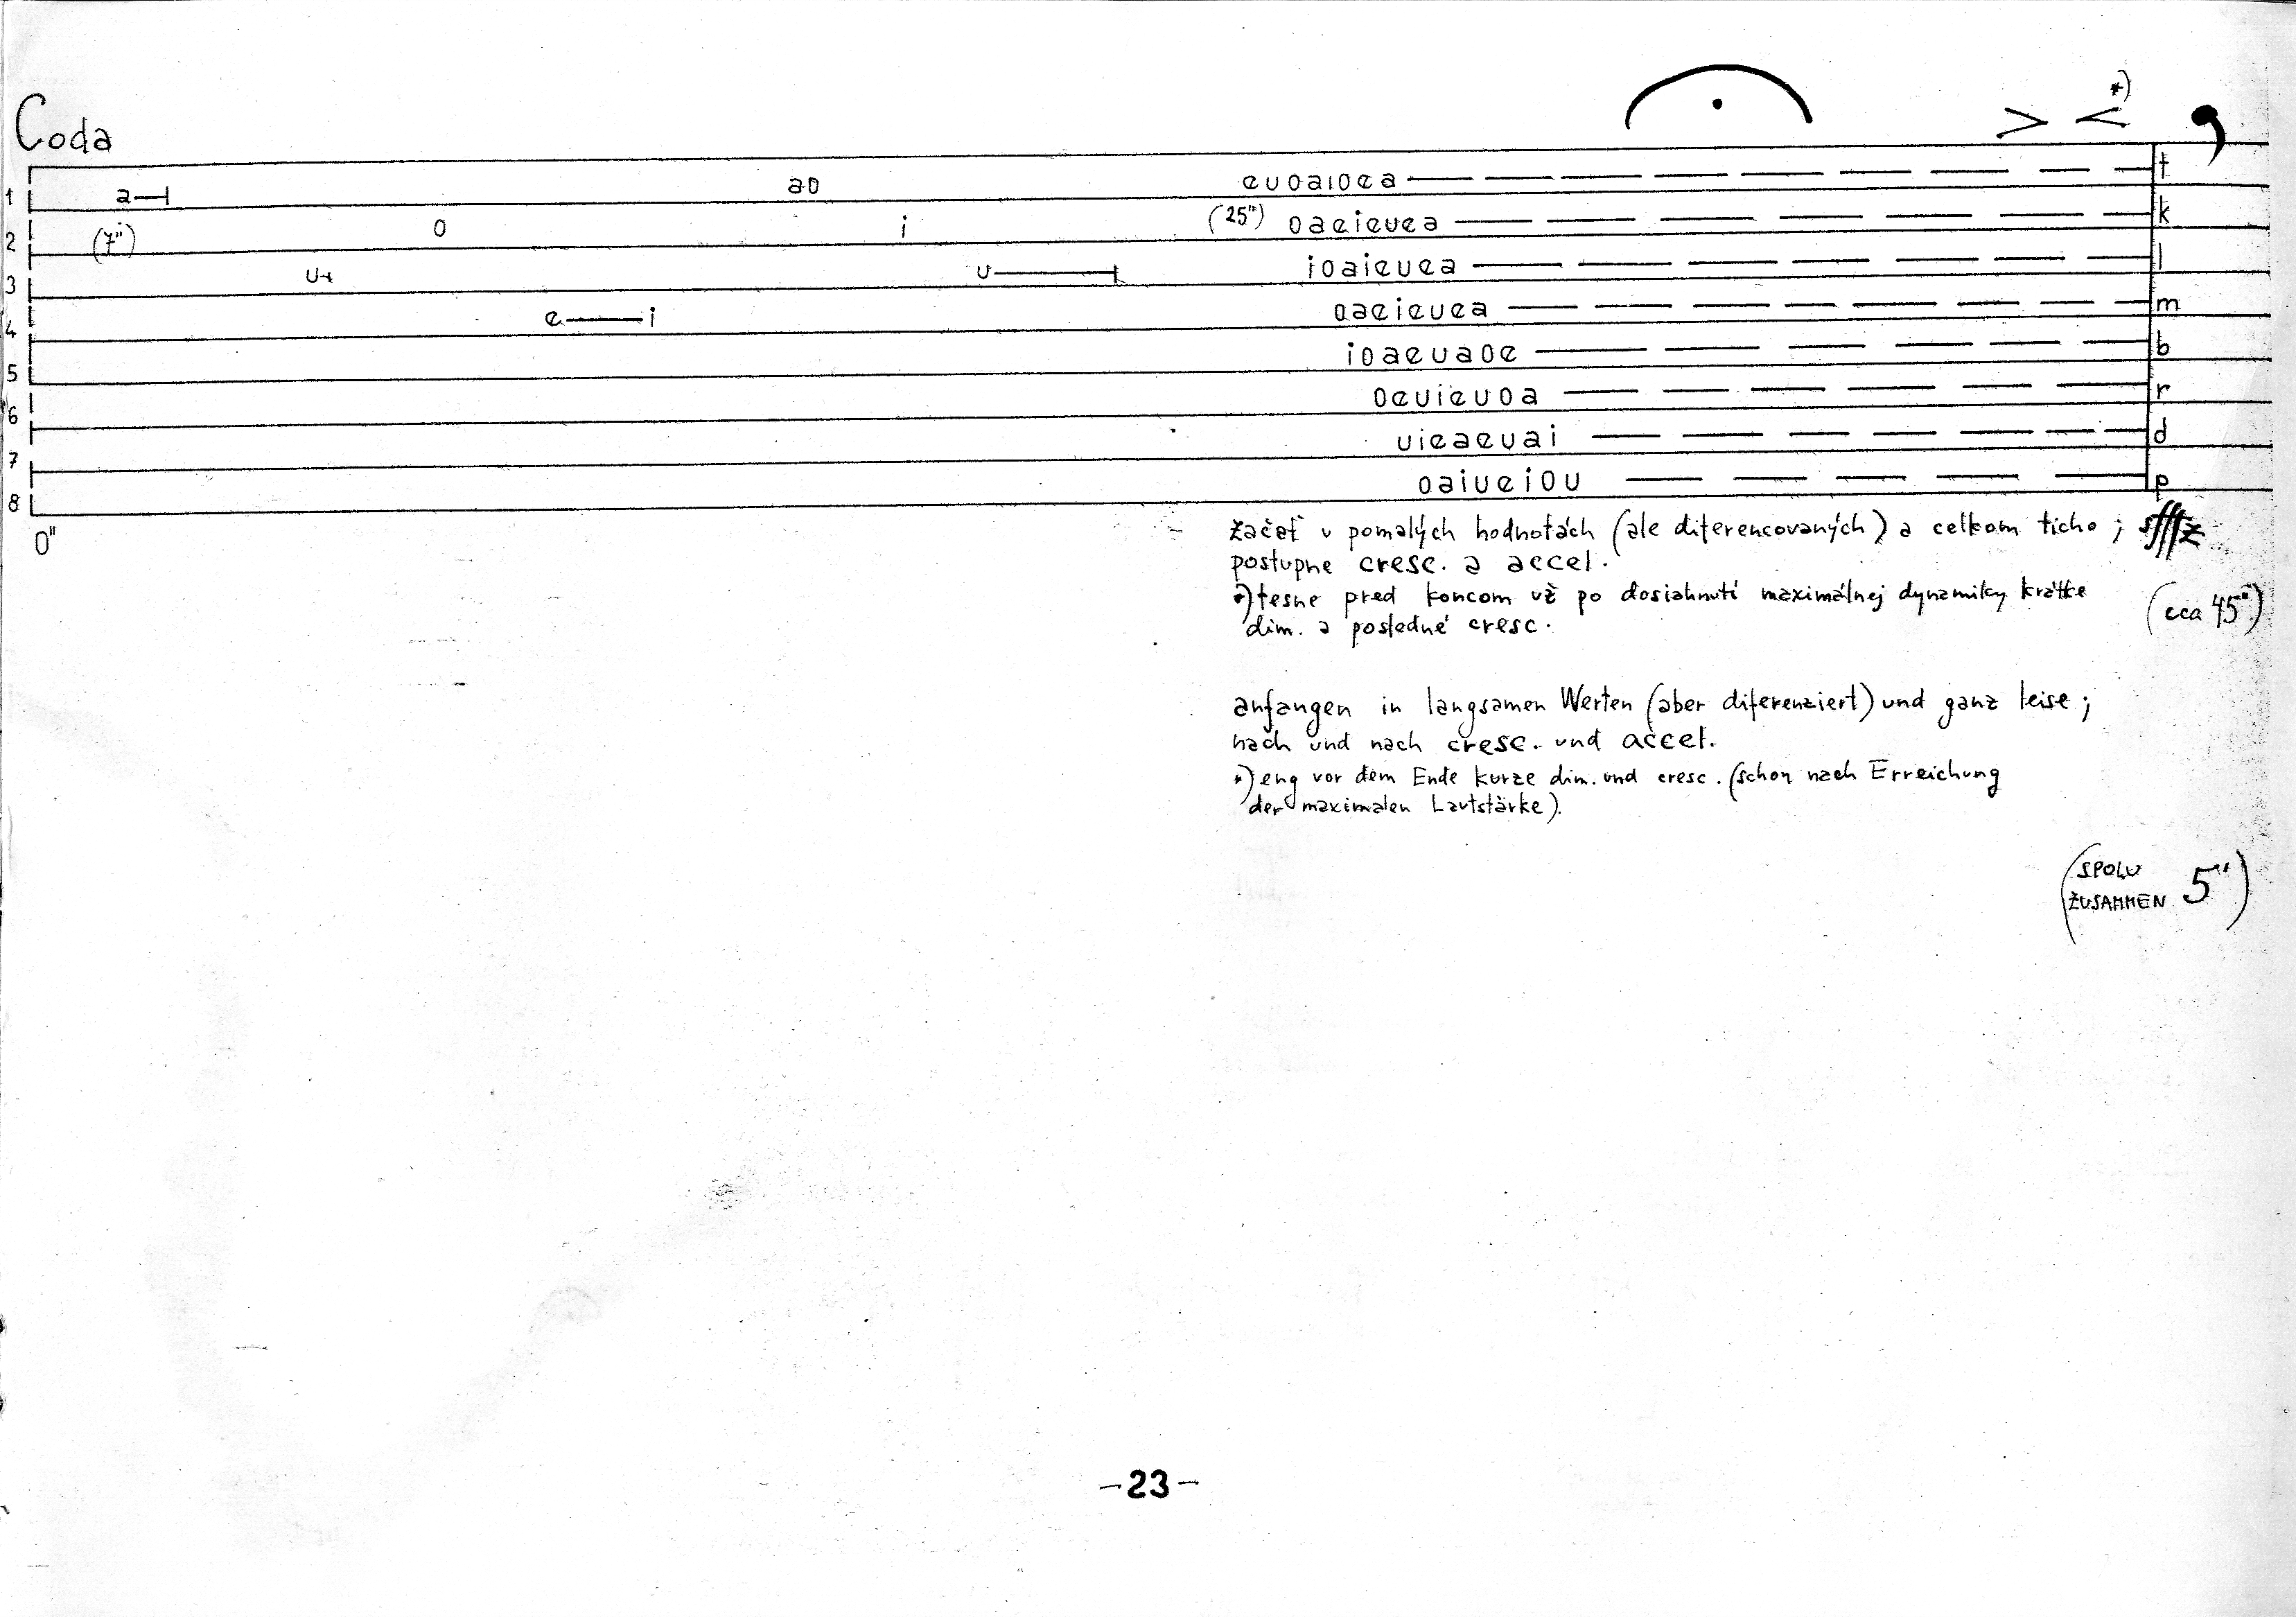 *)
Coda
1 a ao euoaioea t
2 (7") o i (25") oaeieuea k
3 u u ioaieuea l
4 e i oaeieuea m
5 ioaeuaoe b
6 oeuieuoa r
7 uieaeuai d
8 oaiueiou p
0"
začať v pomalých hodnotách (ale diferencovaných) a celkom ticho; sfffz
postupne cresc. a accel.
*) tesne pred koncom už po dosiahnutí maximálnej dynamiky krátke
dim. a posledné cresc.
(cca 45")
anfangen in langsamen Werten (aber diferenziert) und ganz leise;
nach und nach cresc. und accel.
*) eng vor dem Ende kurze dim. und cresc. (schon nach Erreichung
der maximalen Lautstärke).
(SPOLU
ZUSAMMEN 5')
-23-